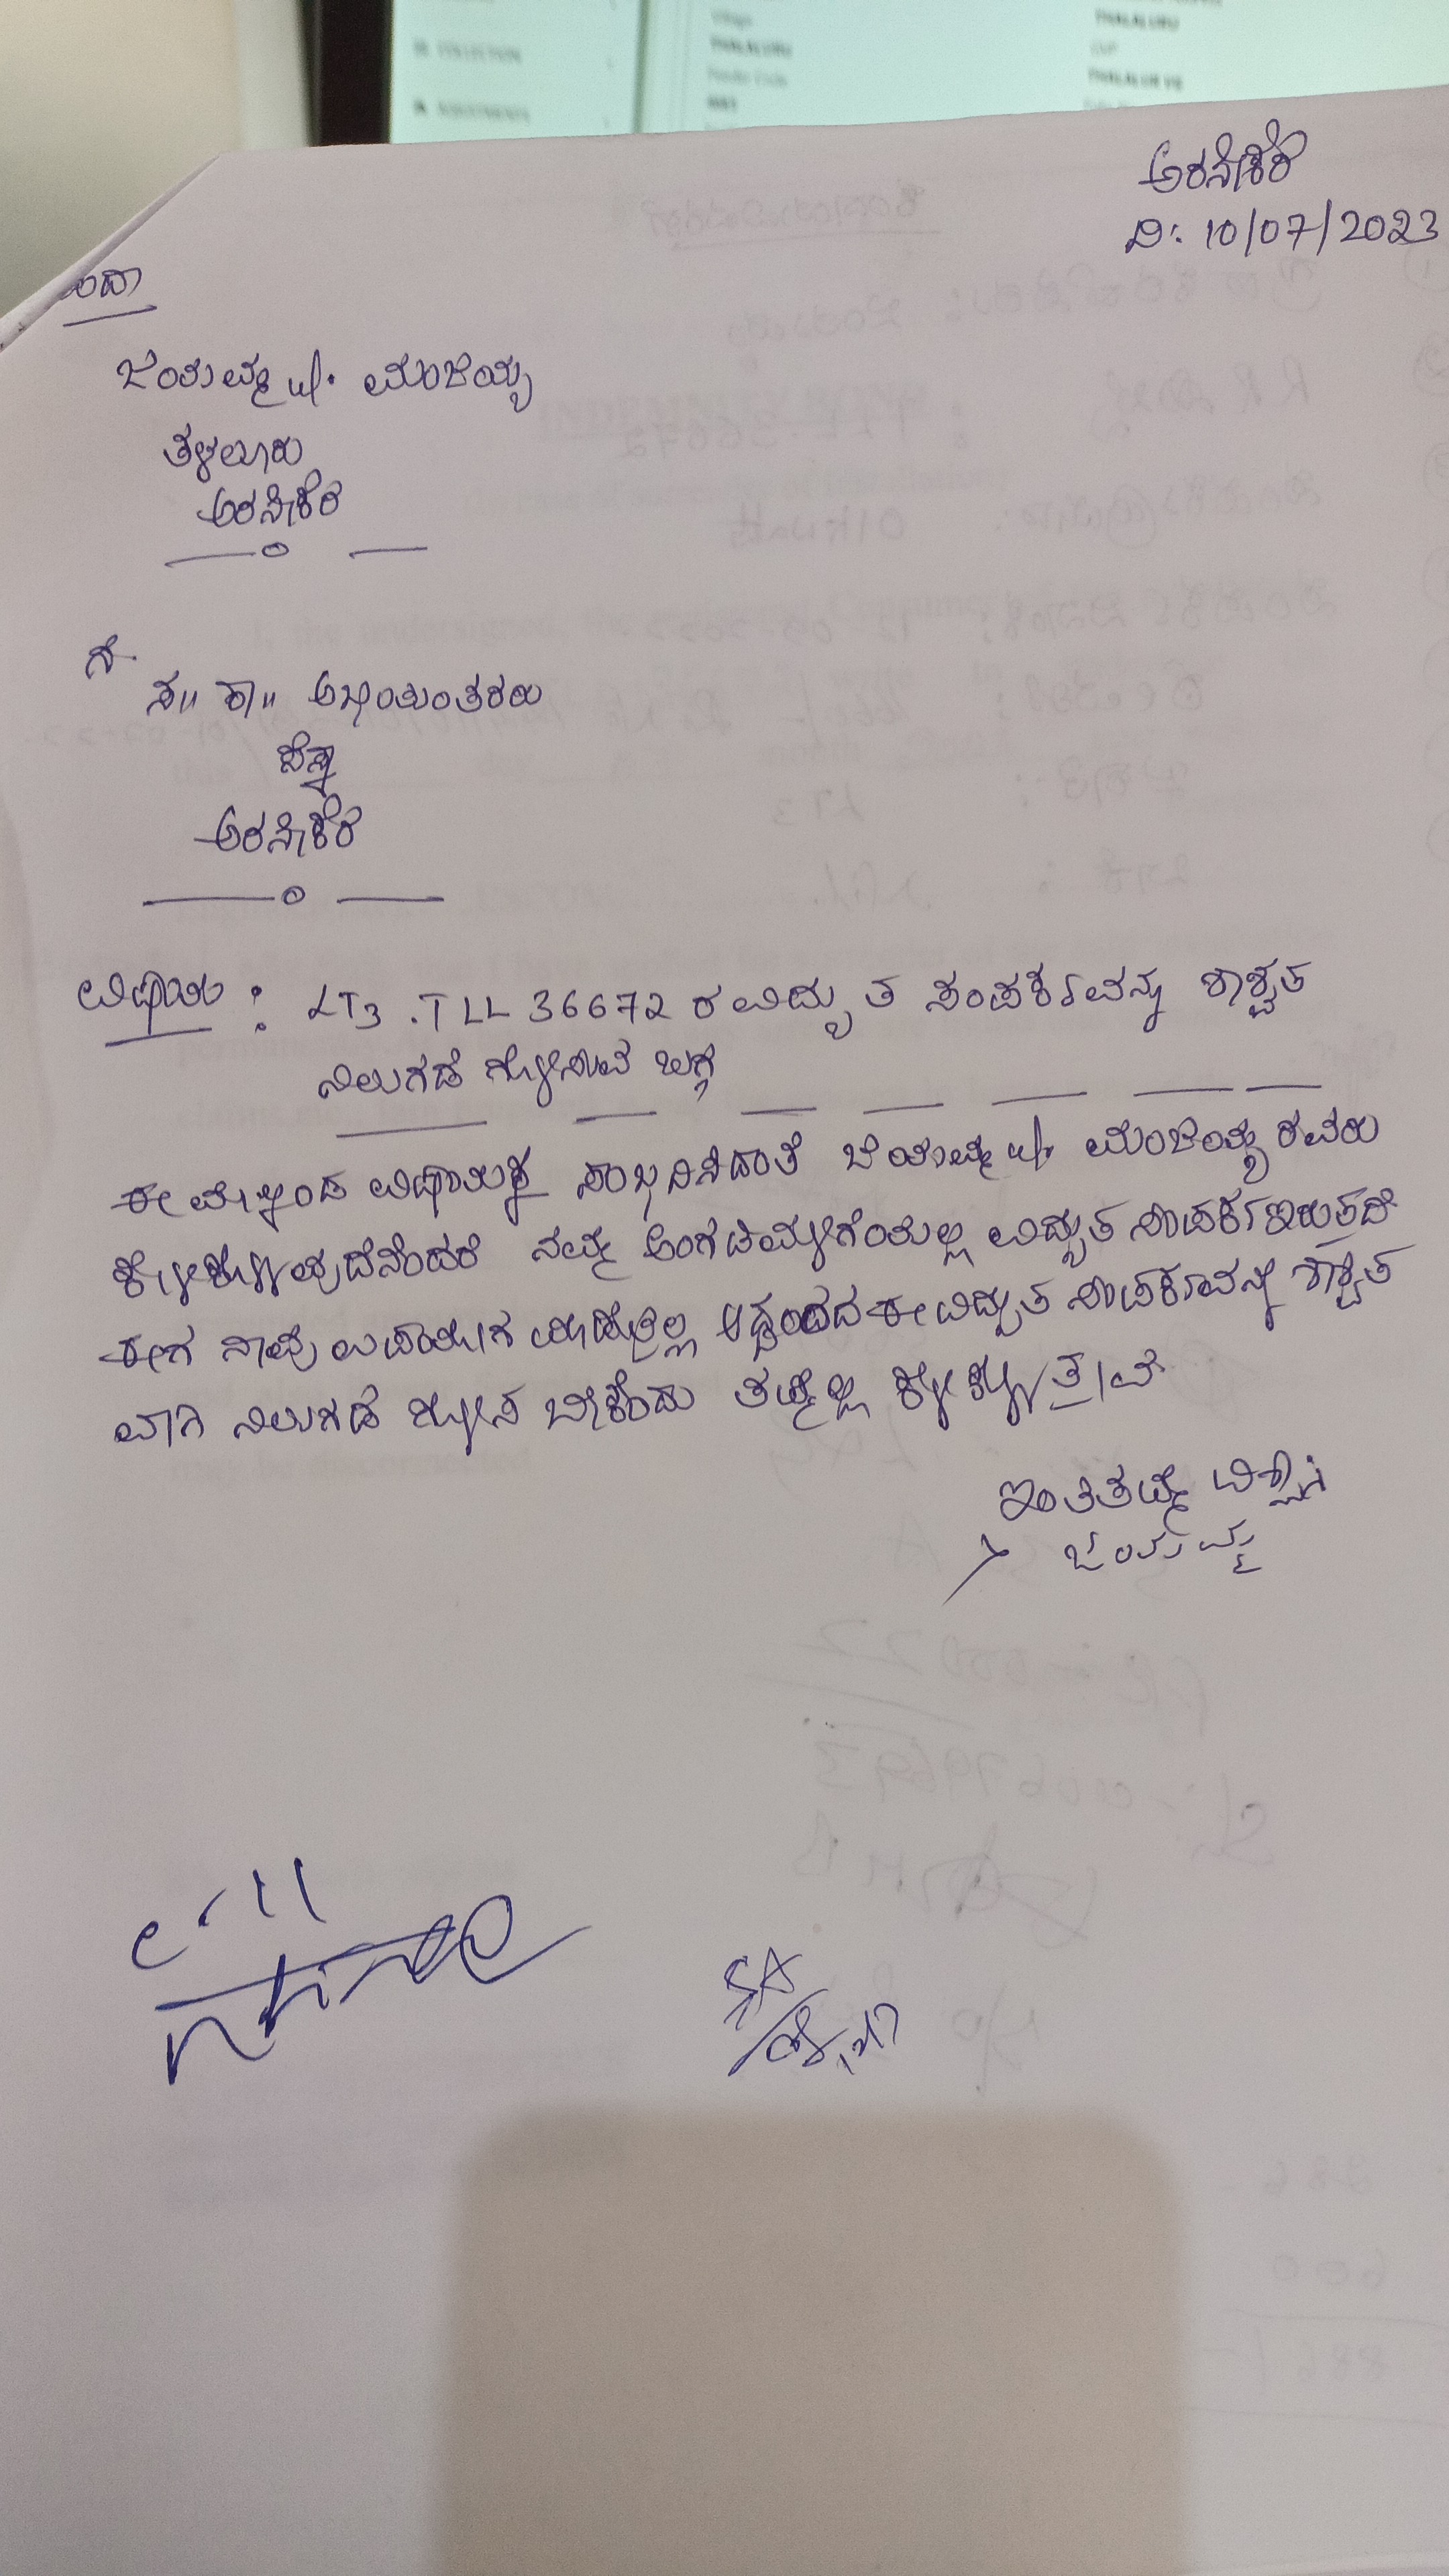 COLLECTION
THALALURU
THALALURU
ಅರಸೀಕೆರೆ
ದಿ: 10/07/2023
ಇಂದಾ
ಜಯಮ್ಮ w/. ಮಂಜಯ್ಯ
ತಳಲೂರು
ಅರಸೀಕೆರೆ
ಗೆ
ಸ॥ ಕಾ॥ ಅಭಿಯಂತರರು
ಅರಸೀಕೆರೆ
ವಿಷಯ : LT3 .TLL 36672 ರ ವಿದ್ಯುತ ಸಂಪರ್ಕವನ್ನು ಶಾಶ್ವತ
ನಿಲುಗಡೆ ಗೊಳಿಸುವ ಬಗ್ಗೆ
ಈ ಮೇಲ್ಕಂಡ ವಿಷಯಕ್ಕೆ ಸಂಬಧಿಸಿದಾತೆ ಜೆಯಮ್ಮ w/. ಮಂಜಯ್ಯ ರವರು
ಕೇಳಿಕೊಳ್ಳುವುದೆನೆಂದರೆ ನಮ್ಮ ಅಂಗಡಿಮಳಿಗೆಯಲ್ಲಿ ವಿದ್ಯುತ ಸಂಪರ್ಕ ಇರುತ್ತದೆ
ಈಗ ನಾವು ಉಪಯೋಗ ಮಾಡುತ್ತಿಲ್ಲ ಆದ್ದರಿಂದ ಈ ವಿದ್ಯುತ ಸಂಪರ್ಕವನ್ನು ಶಾಶ್ವತ
ವಾಗಿ ನಿಲುಗಡೆ ಗೊಳಿಸ ಬೇಕೆಂದು ತಮ್ಮಲ್ಲಿ ಕೇಳಿಕೊಳ್ಳುತ್ತೇವೆ
ಇಂತಿ ತಮ್ಮ ವಿಶ್ವಾಸಿ
ಜಯಮ್ಮ
SA